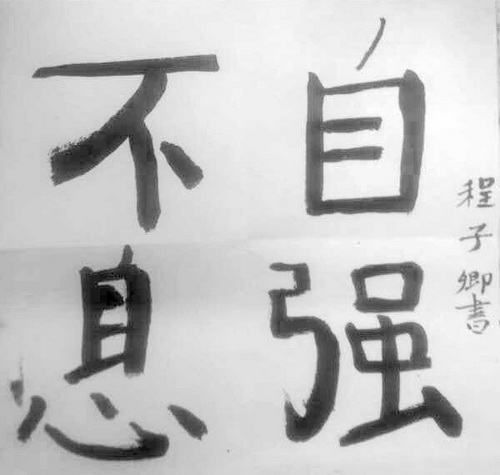 自强
不息
程子卿書